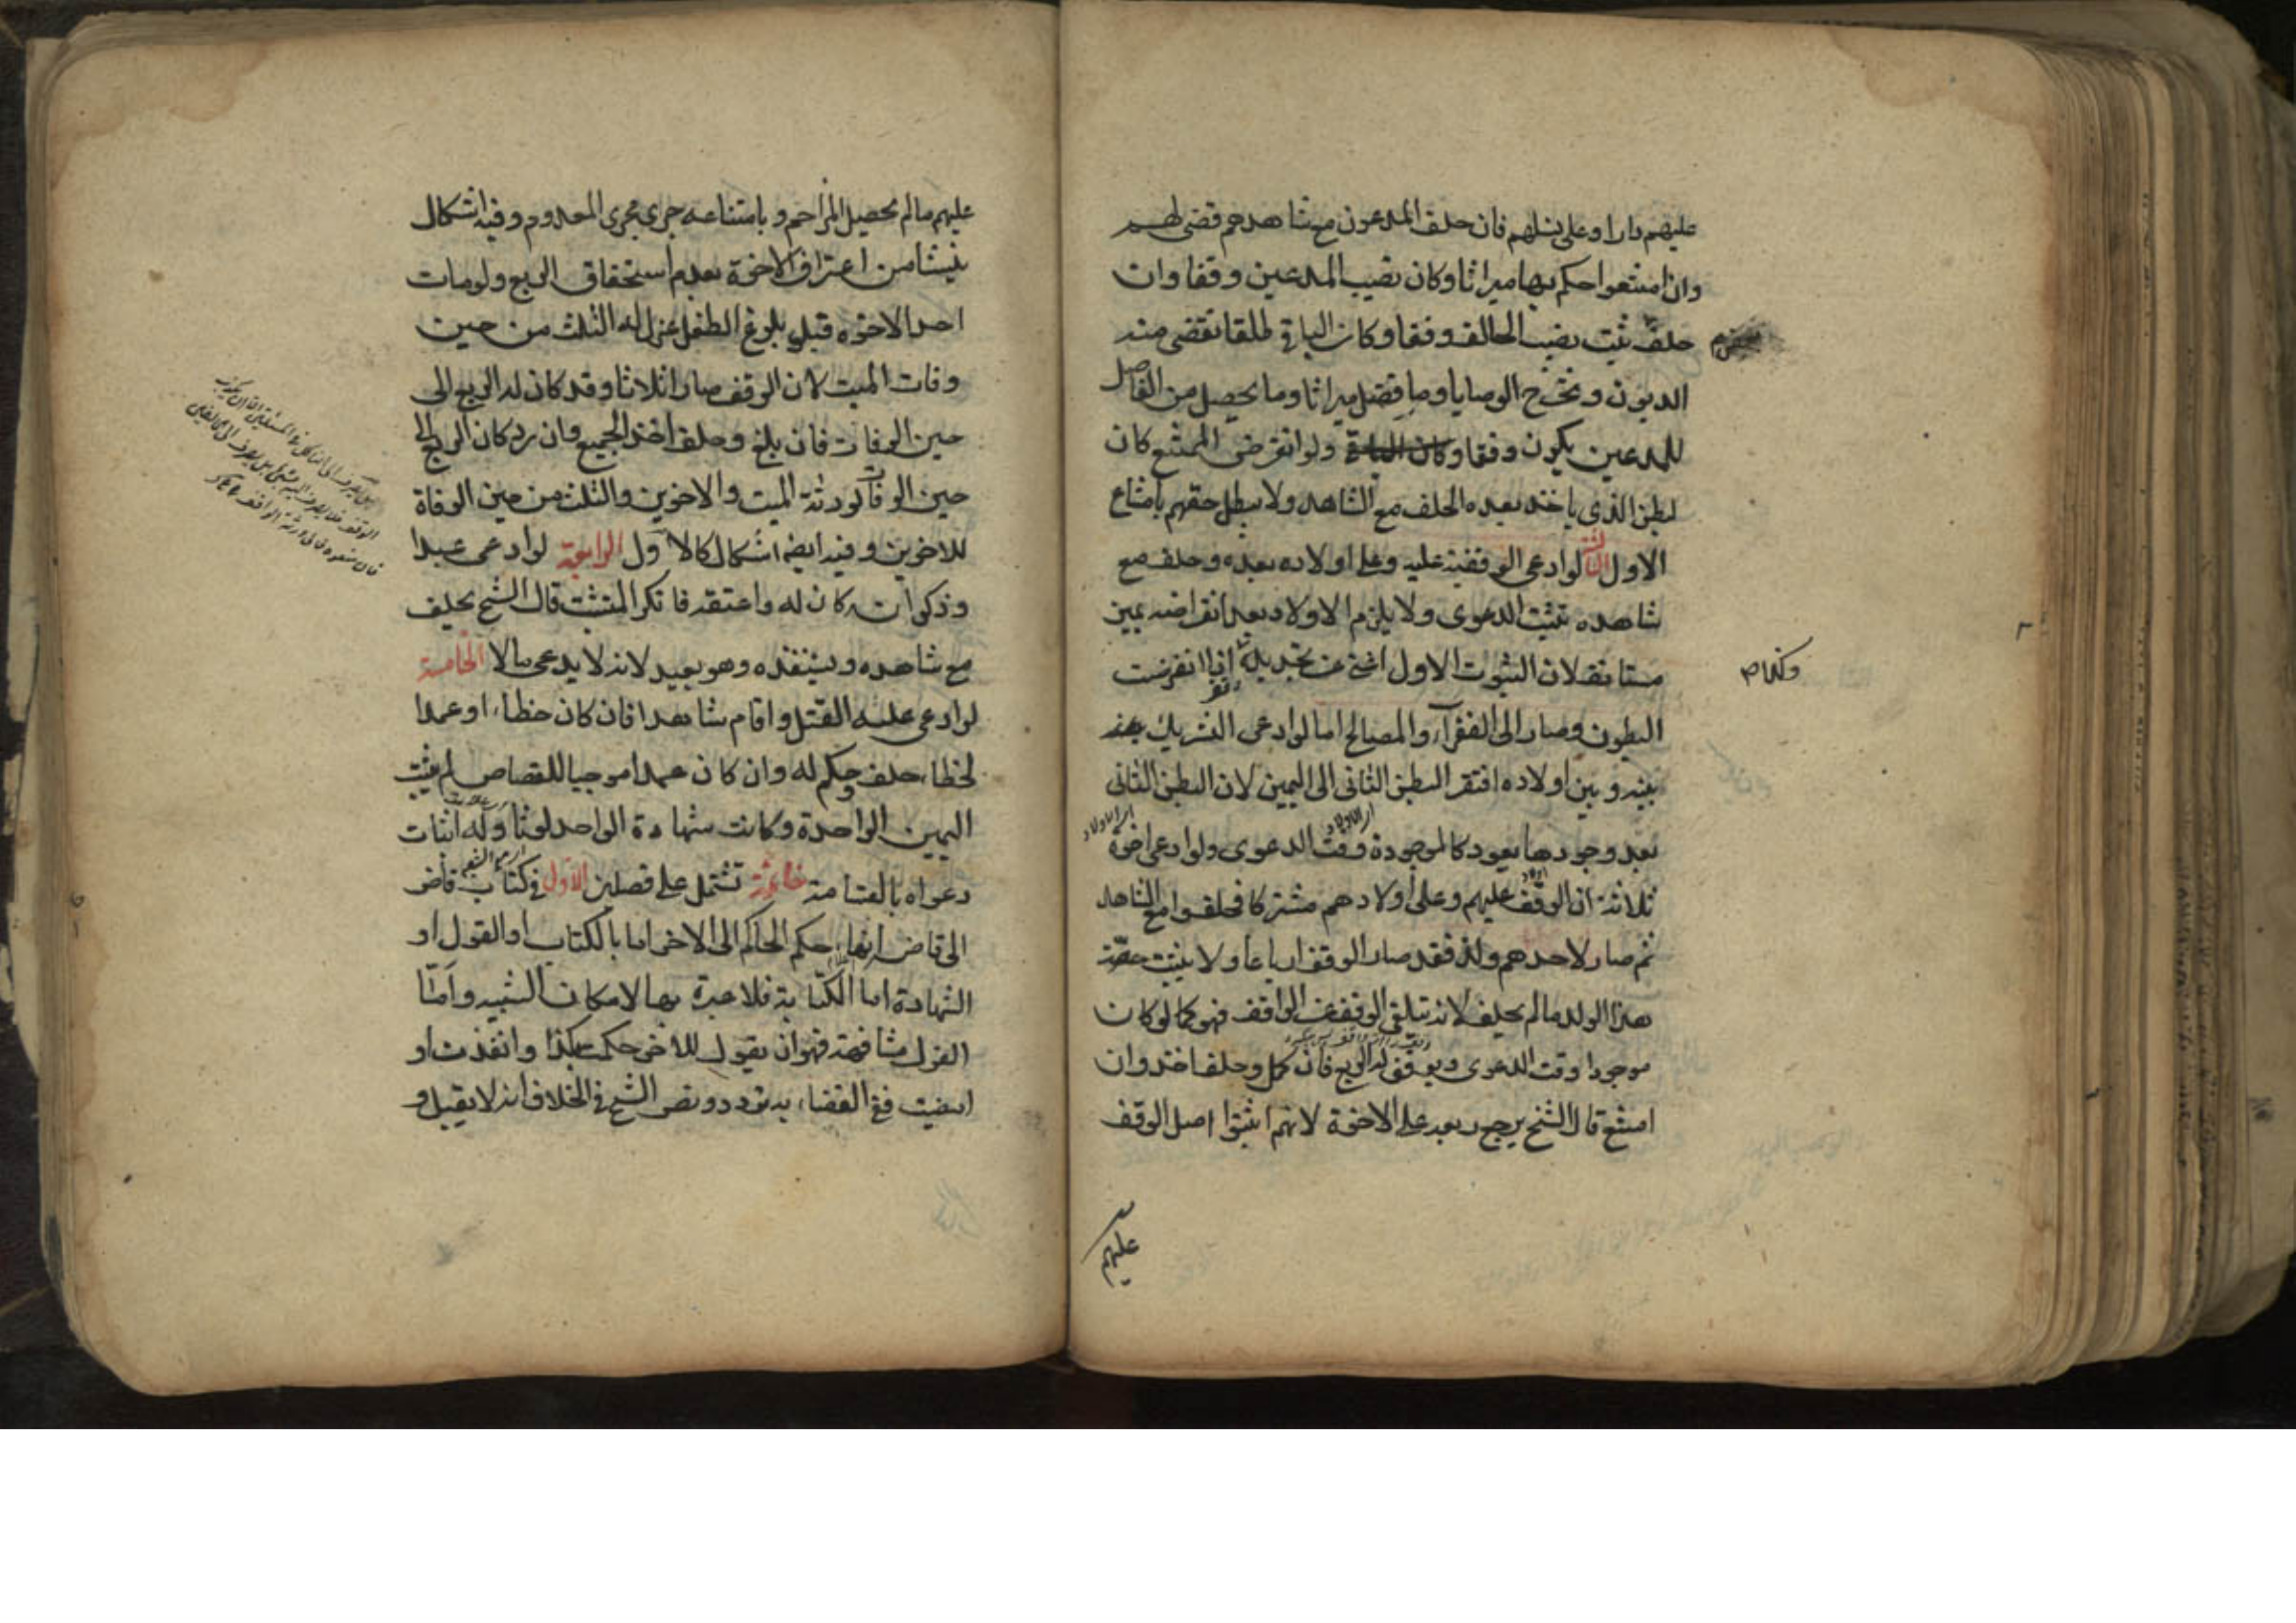 عليهم دارا وعلى نسلهم فان حلف المدعون مع شاهدهم قضى لهم
وان امتنعوا حكم بها ميراثا وكان نصيب المدعين وقفا وان
حلف ثبت نصيب الحالف وقفا وكان الباقي طلقا تقضى منه
الديون وتخرج الوصايا وما فضل ميراثا وما يحصل من الفاضل
للمدعين يكون وقفا ولو انقرض الممتنع كان
لبطن الذي ياخذ بعده الحلف مع الشاهد ولا يبطل حقهم بامتناع
الاول الثالثة لو ادعى الوقفية عليه وعلى اولاده بعده وحلف مع
شاهده تثبت الدعوى ولا يلزم الاولاد بعد انقراضه يمين
مستانفة لان الثبوت الاول اغنى عن تجديده اذا انقرضت
وكذا
البطون وصار الى الفقراء والمصالح اما لو ادعى التشريك
بينه وبين اولاده افتقر البطن الثاني الى اليمين لان البطن الثاني
بعد وجودها يعود كالموجودة وقت الدعوى ولو ادعى اخوة
ثلاثة ان الوقف عليهم وعلى اولادهم مشتركا فحلفوا مع الشاهد
ثم صار لاحدهم ولد فقد صار الوقف ارباعا ولا يثبت حصة
هذا الولد ما لم يحلف لانه يتلقى الوقف عن الواقف فهو كما لو كان
موجودا وقت الدعوى ويوقف له الربع فان كمل وحلف اخذ وان
امتنع قال الشيخ يرجع ربعه على الاخوة لانهم اثبتوا اصل الوقف
عليهم
عليهم ما لم يحصل المزاحم وبامتناعه جرى مجرى المعدوم وفيه اشكال
ينشا من اعتراف الاخوة بعدم استحقاق الربع ولو مات
احد الاخوه قبل بلوغ الطفل عزل له الثلث من حين
وفات الميت لان الوقف صار اثلاثا وقد كان له الربع الى
حين الوفات فان بلغ وحلف اخذ الجميع وان رد كان الربع الى
حين الوفات لورثة الميت والاخوين والثلث من حين الوفاة
للاخوين وفيه ايضا اشكال كالاول الرابعة لو ادعى عبدا
وذكر انه كان له واعتقه فانكر المتشبث قال الشيخ يحلف
مع شاهده ويستنقذه وهو بعيد لانه لا يدعى مالا الخامسة
لو ادعى عليه القتل واقام شاهدا فان كان خطاء او عمدا
لخطاء حلف وحكم له وان كان عمدا موجبا للقصاص لم يثبت
اليمين الواحدة وكانت شهادة الواحد لوثا وله اثبات
دعواه بالقسامة خاتمة تشتمل على فصلين الاول في كتاب قاض
الى قاض انهاء حكم الحاكم الى الاخر اما بالكتاب او القول او
الشهادة اما الكتابة فلا عبرة بها لامكان التشبيه واما
القول مشافهة فهو ان يقول للاخر حكمت بكذا وانفذت او
امضيت ففي القضاء به تردد ونص الشيخ في الخلاف انه لا يقبل و